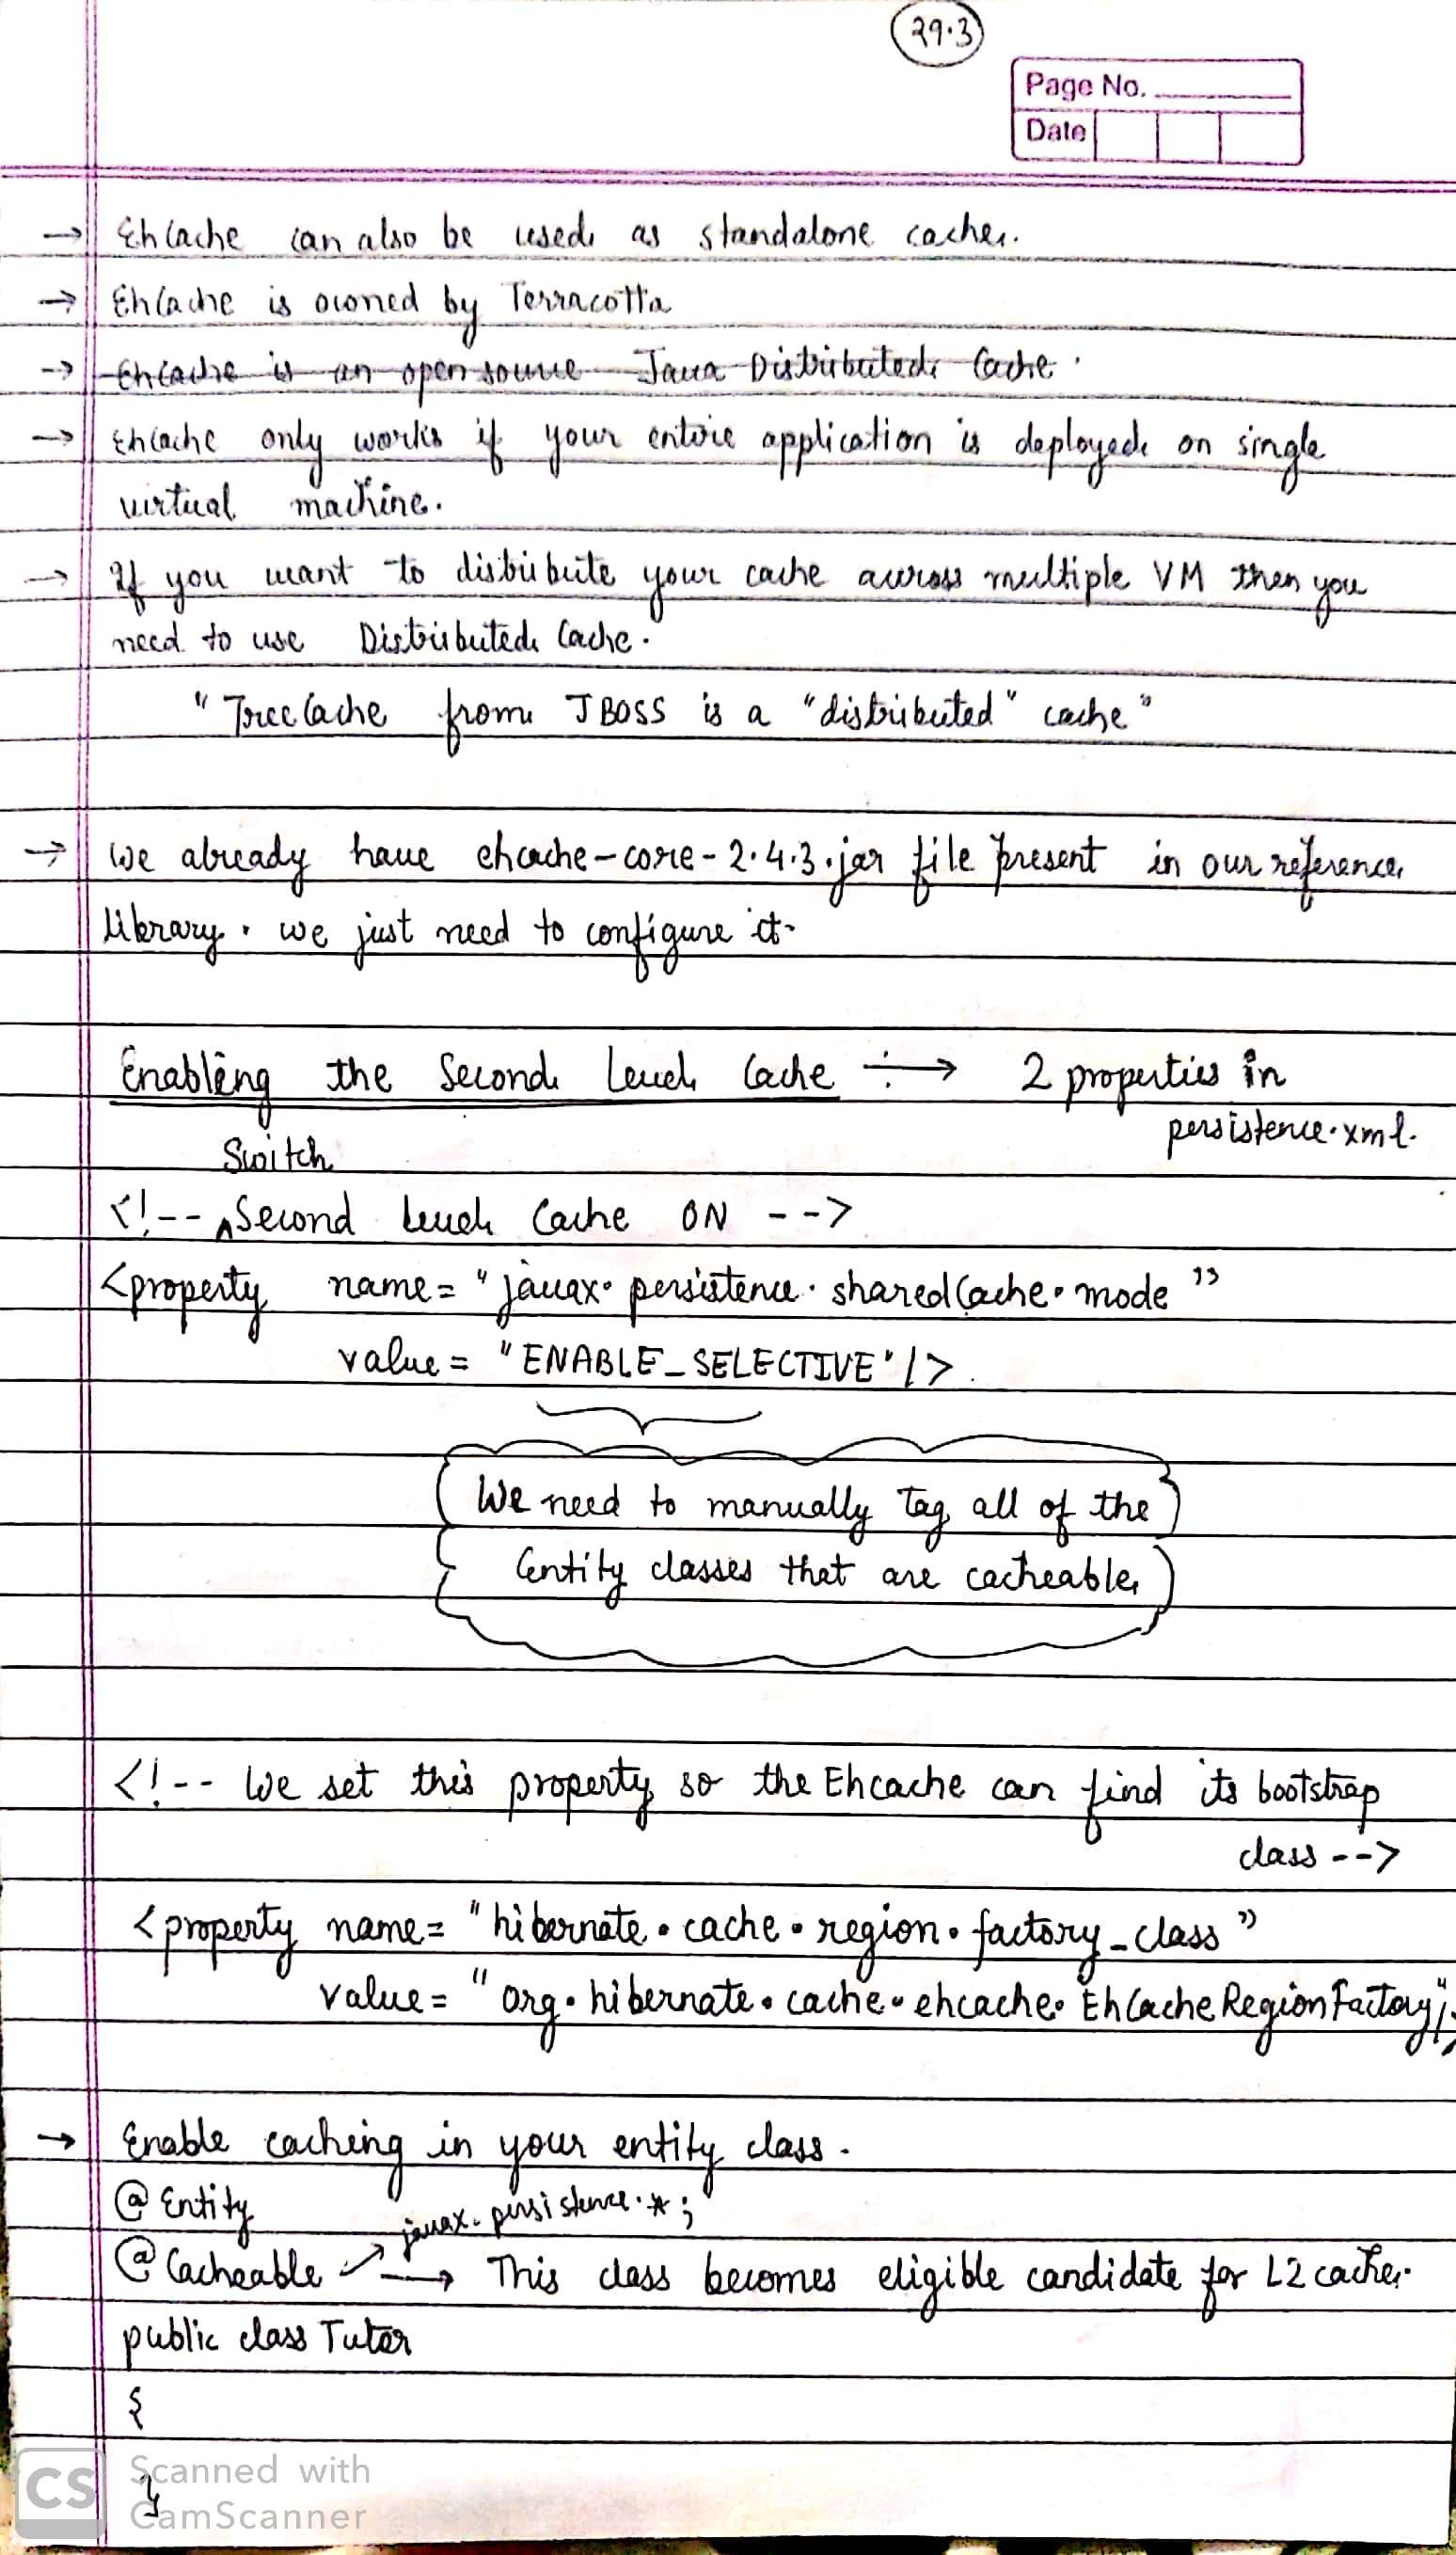 29.3
Page No.
Date
→ EhCache can also be used as standalone cache.
→ EhCache is owned by Terracotta
→ EhCache is an open source Java Distributed Cache.
→ Ehcache only works if your entire application is deployed on single
virtual machine.
→ If you want to distribute your cache across multiple VM then you
need to use Distributed Cache.
"TreeCache from JBOSS is a "distributed" cache"
→ We already have ehcache-core-2.4.3.jar file present in our reference
library. we just need to configure it.
Enabling the Second Level Cache ÷→ 2 properties in
persistence.xml.
Switch
<!-- ^Second Level Cache ON -->
<property name="javax.persistence.sharedCache.mode"
value="ENABLE_SELECTIVE"/>.
We need to manually Tag all of the
Entity classes that are cacheable
<!-- We set this property so the Ehcache can find its bootstrap
class -->
<property name="hibernate.cache.region.factory_class"
value="org.hibernate.cache.ehcache.EhCacheRegionFactory"/>
→ Enable caching in your entity class.
@Entity
javax.persistence.*;
@Cacheable → This class becomes eligible candidate for L2 cache.
public class Tutor
{
}
CS Scanned with
CamScanner